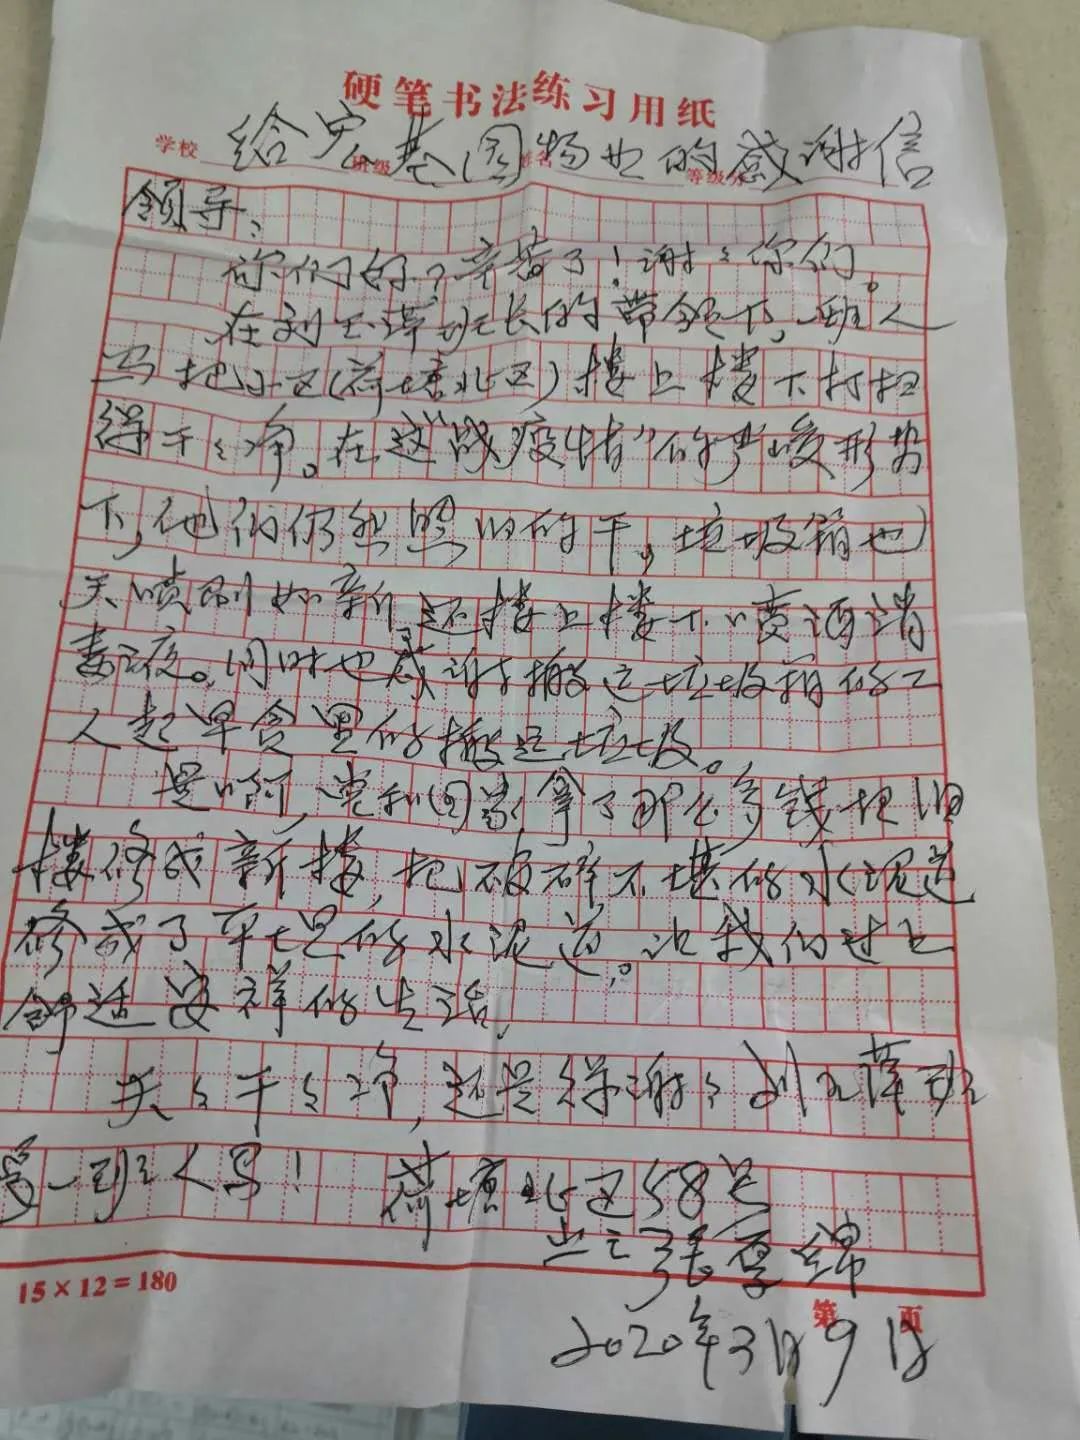 硬笔书法练习用纸
学校 班级 姓名 等级分
给宏基园物业的感谢信
领导:
你们好,辛苦了!谢谢你们。
在刘玉萍班长的带领下,一班人
马把小区(荷塘北区)楼上楼下打扫
得干干净。在这"战疫情"的严峻形势
下,他们仍然照旧的干,垃圾箱也
天喷刷如新,还楼上楼下喷洒消
毒液。同时也感谢搬运垃圾箱的工
人起早贪黑的搬运垃圾。
是啊,党和国家拿了那么多钱把旧
楼修成新楼,把破碎不堪的水泥道
修成了平坦的水泥道。让我们过上
舒适安祥的生活,
天天干干净,还是得谢谢刘玉萍班
长一班人马!荷塘北区58号
业主 張厚绵
15×12=180
第 页
2020年3月9日